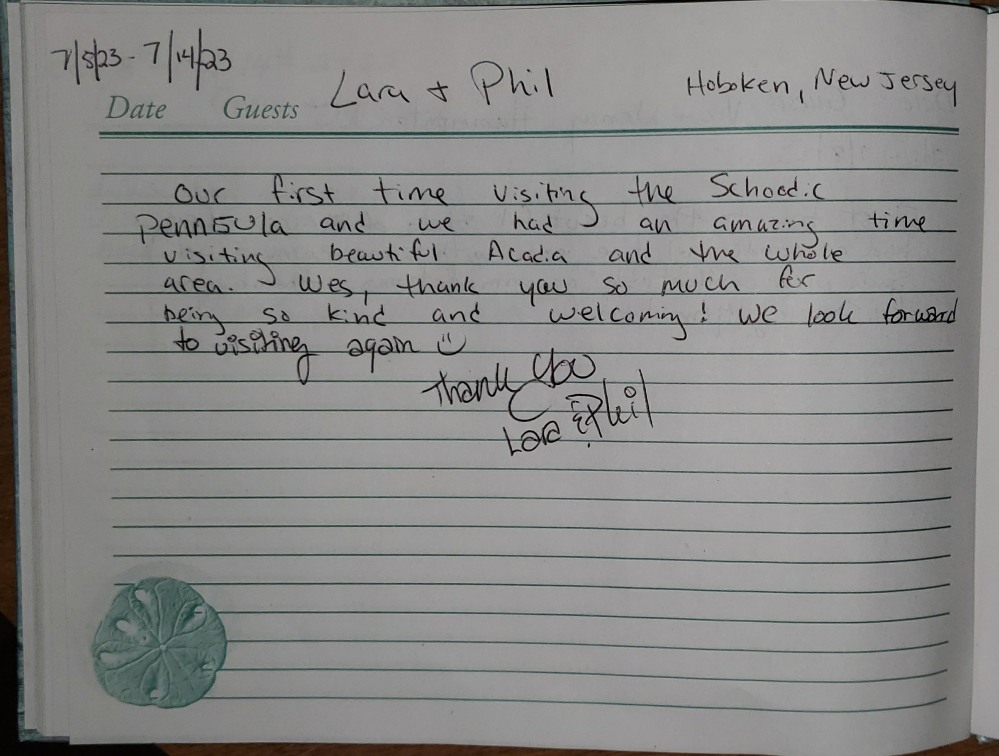 7/5/23 - 7/14/23
Lara + Phil
Hoboken, New Jersey
Date Guests
Our first time visiting the Schoodic
Pennisula and we had an amazing time
visiting beautiful Acadia and the whole
area. Wes, thank you so much for
being so kind and welcoming! We look forward
to visiting again ☺
Thank you
Lara & Phil